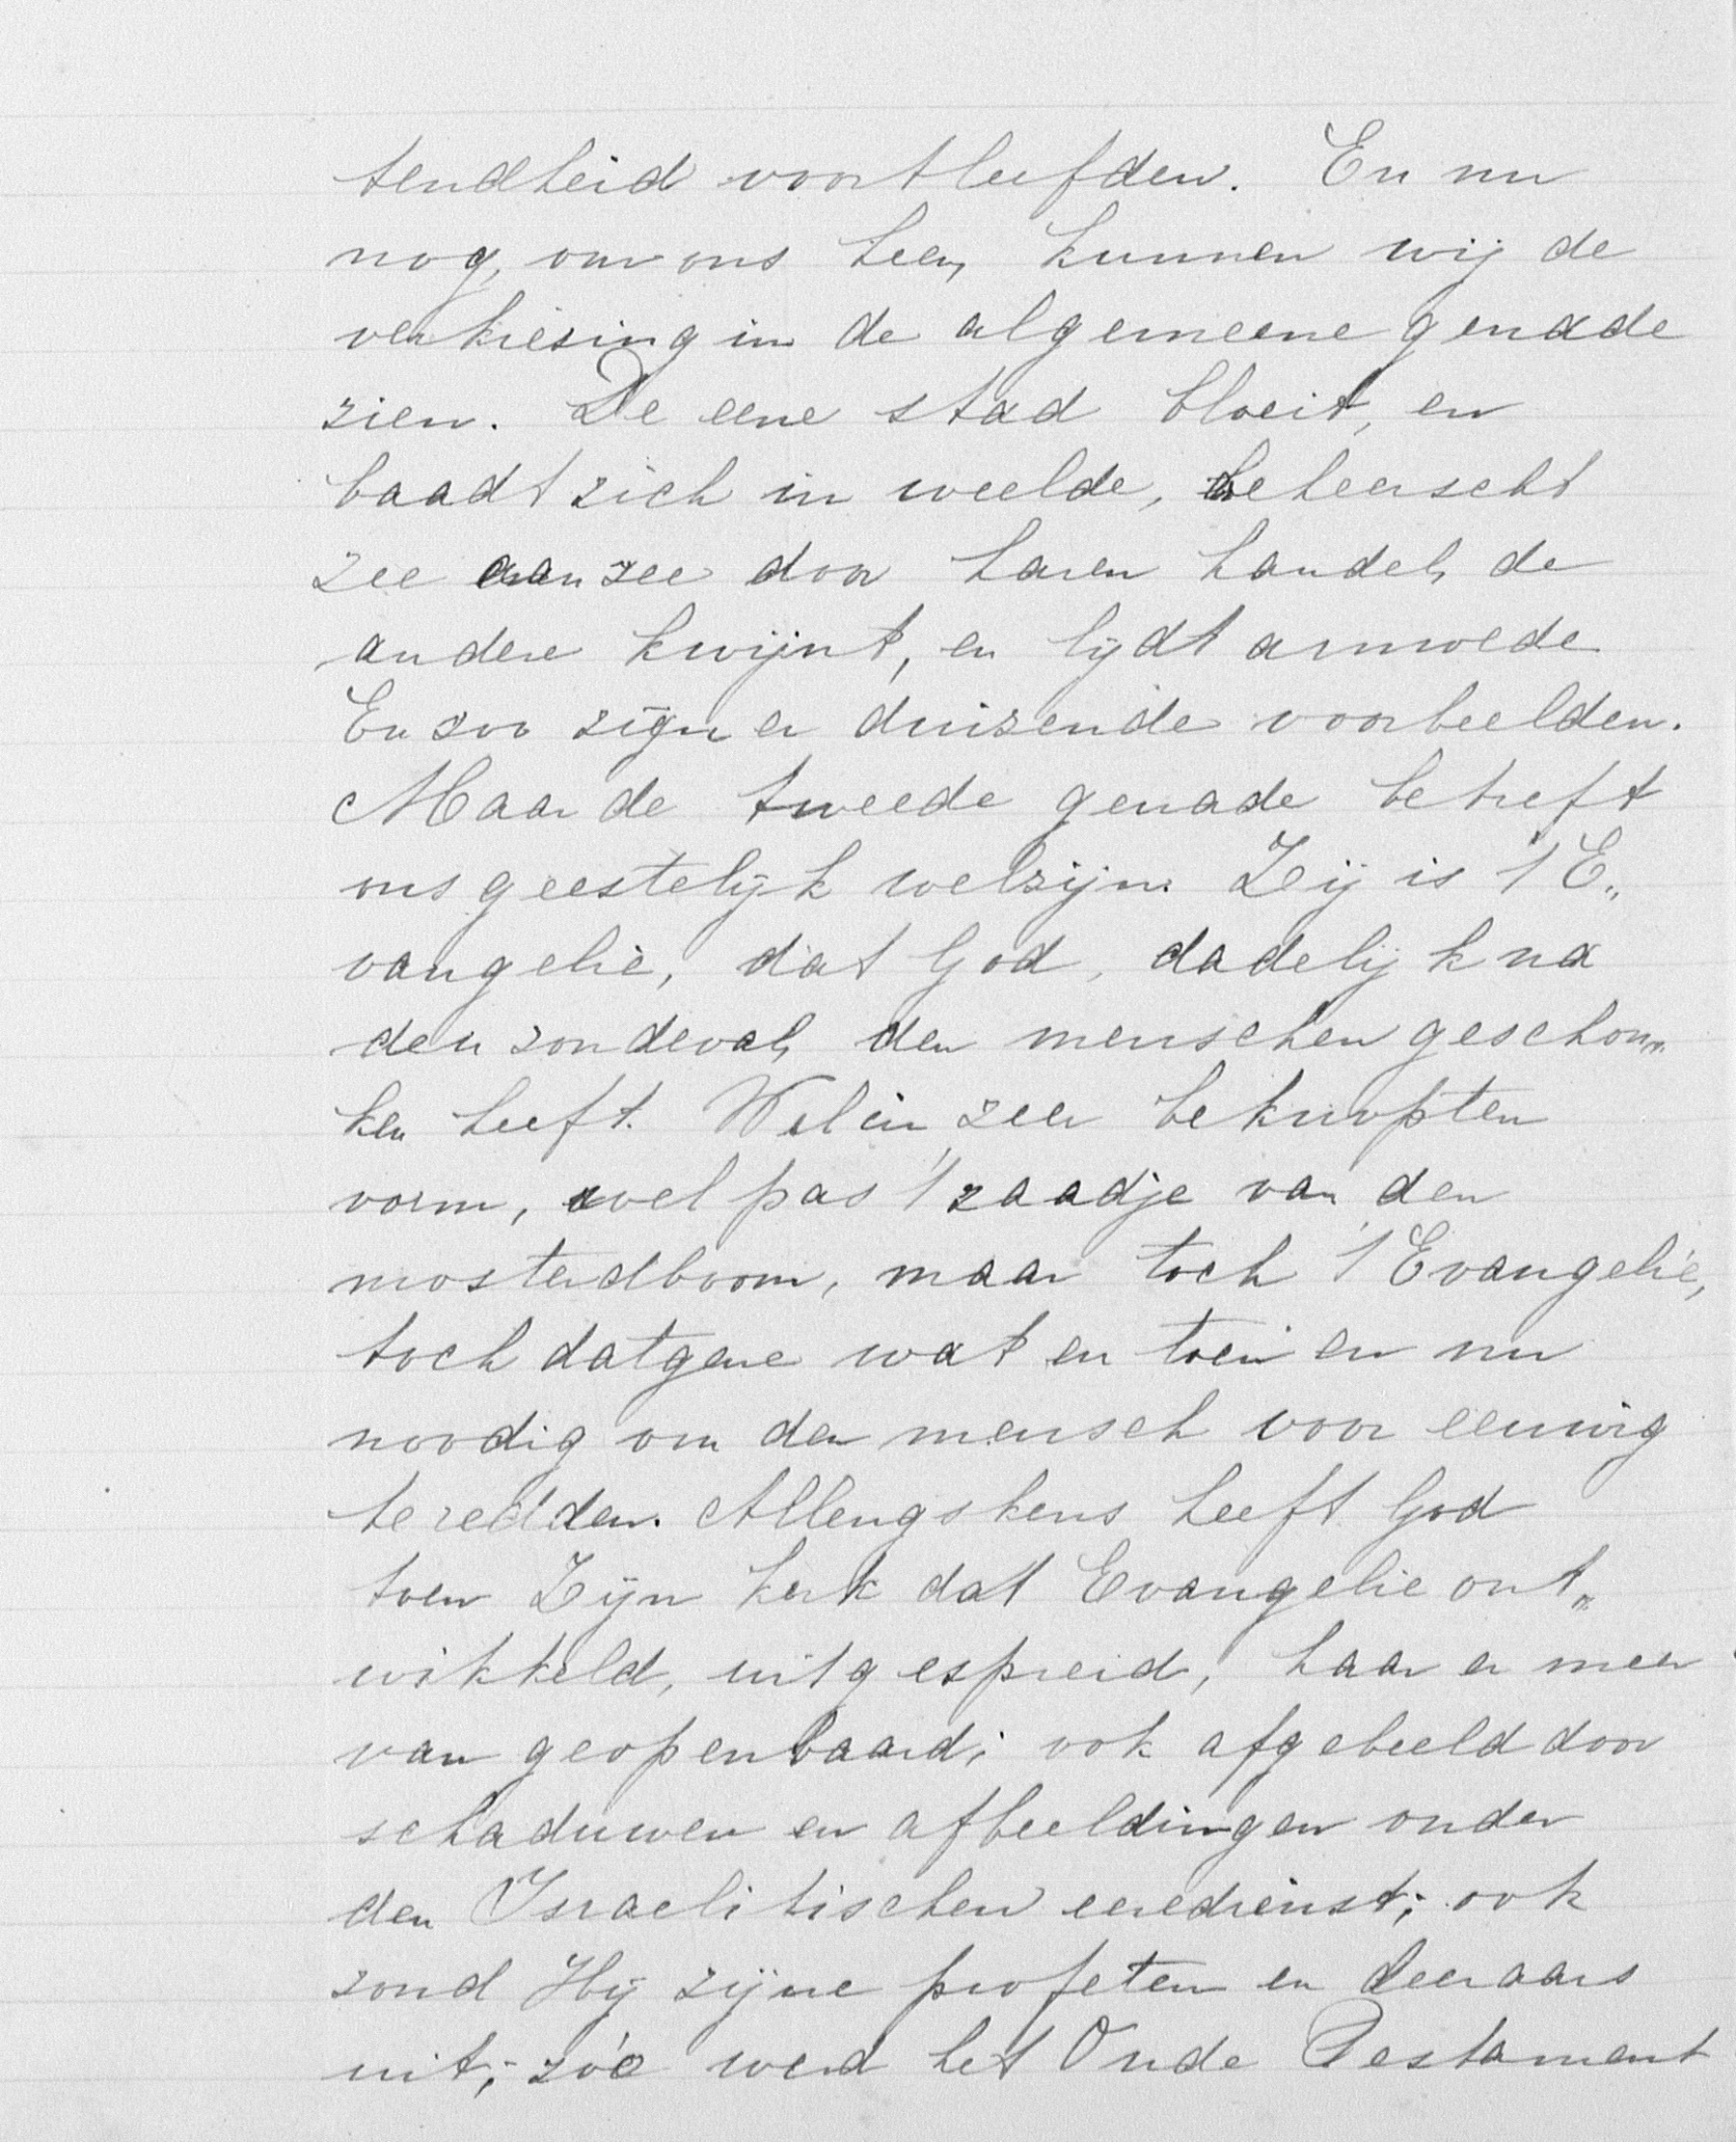 tendheid voortleefden. En nu
nog, om ons heen, kunnen wij de
verkiezing in de algemeene genade
zien. De eene stad bloeit, en
baadt zich in weelde, beheerscht
zee aan zee door haren handel, de
andere kwijnt, en lijdt armoede
En zoo zijn er duizende voorbeelden.
Maar de tweede genade betreft
ons geestelijk welzijn. Zij is 't E„
vangelie, dat God, dadelijk na
den zondeval, den menschen geschon„
ken heeft. Wel in zeer beknopten
vorm, wel pas 't zaadje van den
mosterdboom, maar toch 't Evangelie,
toch datgene wat en toen en nu
noodig om den mensch voor eeuwig
te redden. Allengskens heeft God
toen Zijn kerk dat Evangelie ont„
wikkeld, uitgespreid, haar er meer
van geopenbaard; ook afgebeeld door
schaduwen en afbeeldingen onder
den Israelitischen eeredienst; ook
zond Hij zijne profeten en leeraars
uit; zóó werd het Oude Testament